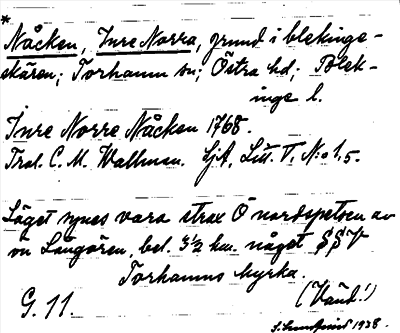 *
Nåcken, Inre Norra, grund i blekinge-
skären; Torhamn sn; Östra hd; Blek-
inge l.
Inre Norre Nåcken 1768.
Trol. C. M. Wallman. SjA, Litt. V, N:o 1,5.
Läget synes vara strax Ö nordspetsen av
ön Långören, bel. 3½ km. något SSV
Torhamns kyrka.
G. 11.
(Vänd!)
S. Lundquist 1938.